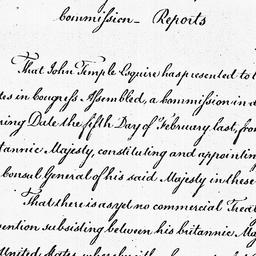 Commission — Reports
That John Temple Esquire has presented to t
tes in Congress Assembled, a Commission in d
ring Date the fifth Day of February last, fro
tannic Majesty, constituting and appointin
Consul General of his said Majesty in these
That there is as yet no commercial Treat
vention subsisting between his britannic Ma
United States